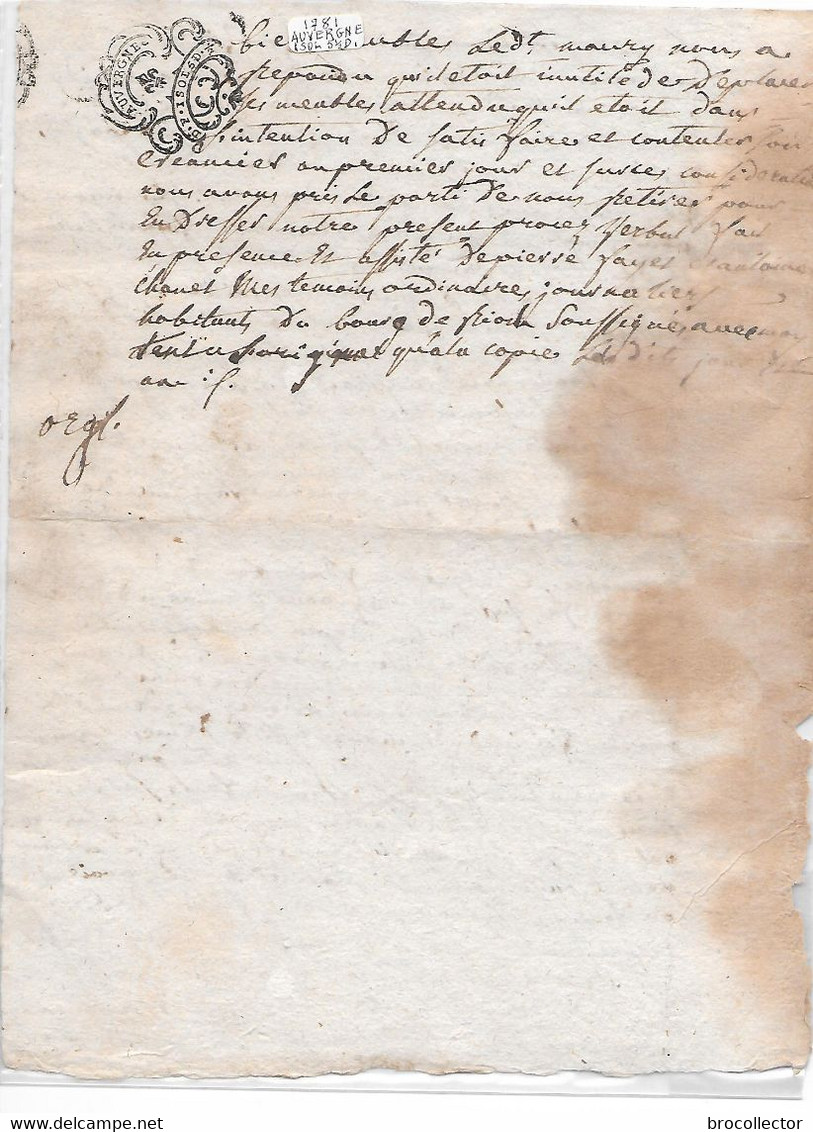 1781
AUVERGNE
AUVERGNE
meubles Ledt. maury nous a
repondu quil etoit inutile de Deplacer
ses meubles attendu quil etoit dans
intention De satisfaire et contenter son
creancier au premier jour et sur ces consideration
nous avons pris Le parti De nous retirer pour
En Dresser notre present procez verbal fait
En presence Et assisté De pierre fayet Et antoine
Chanet Mes temoins ordinaires journaliers
habitants Du bourg de riom soussignés avec moy
tent a Loriginal qu'a la copie Les Dit jour Et
an
orgl.
brocollector